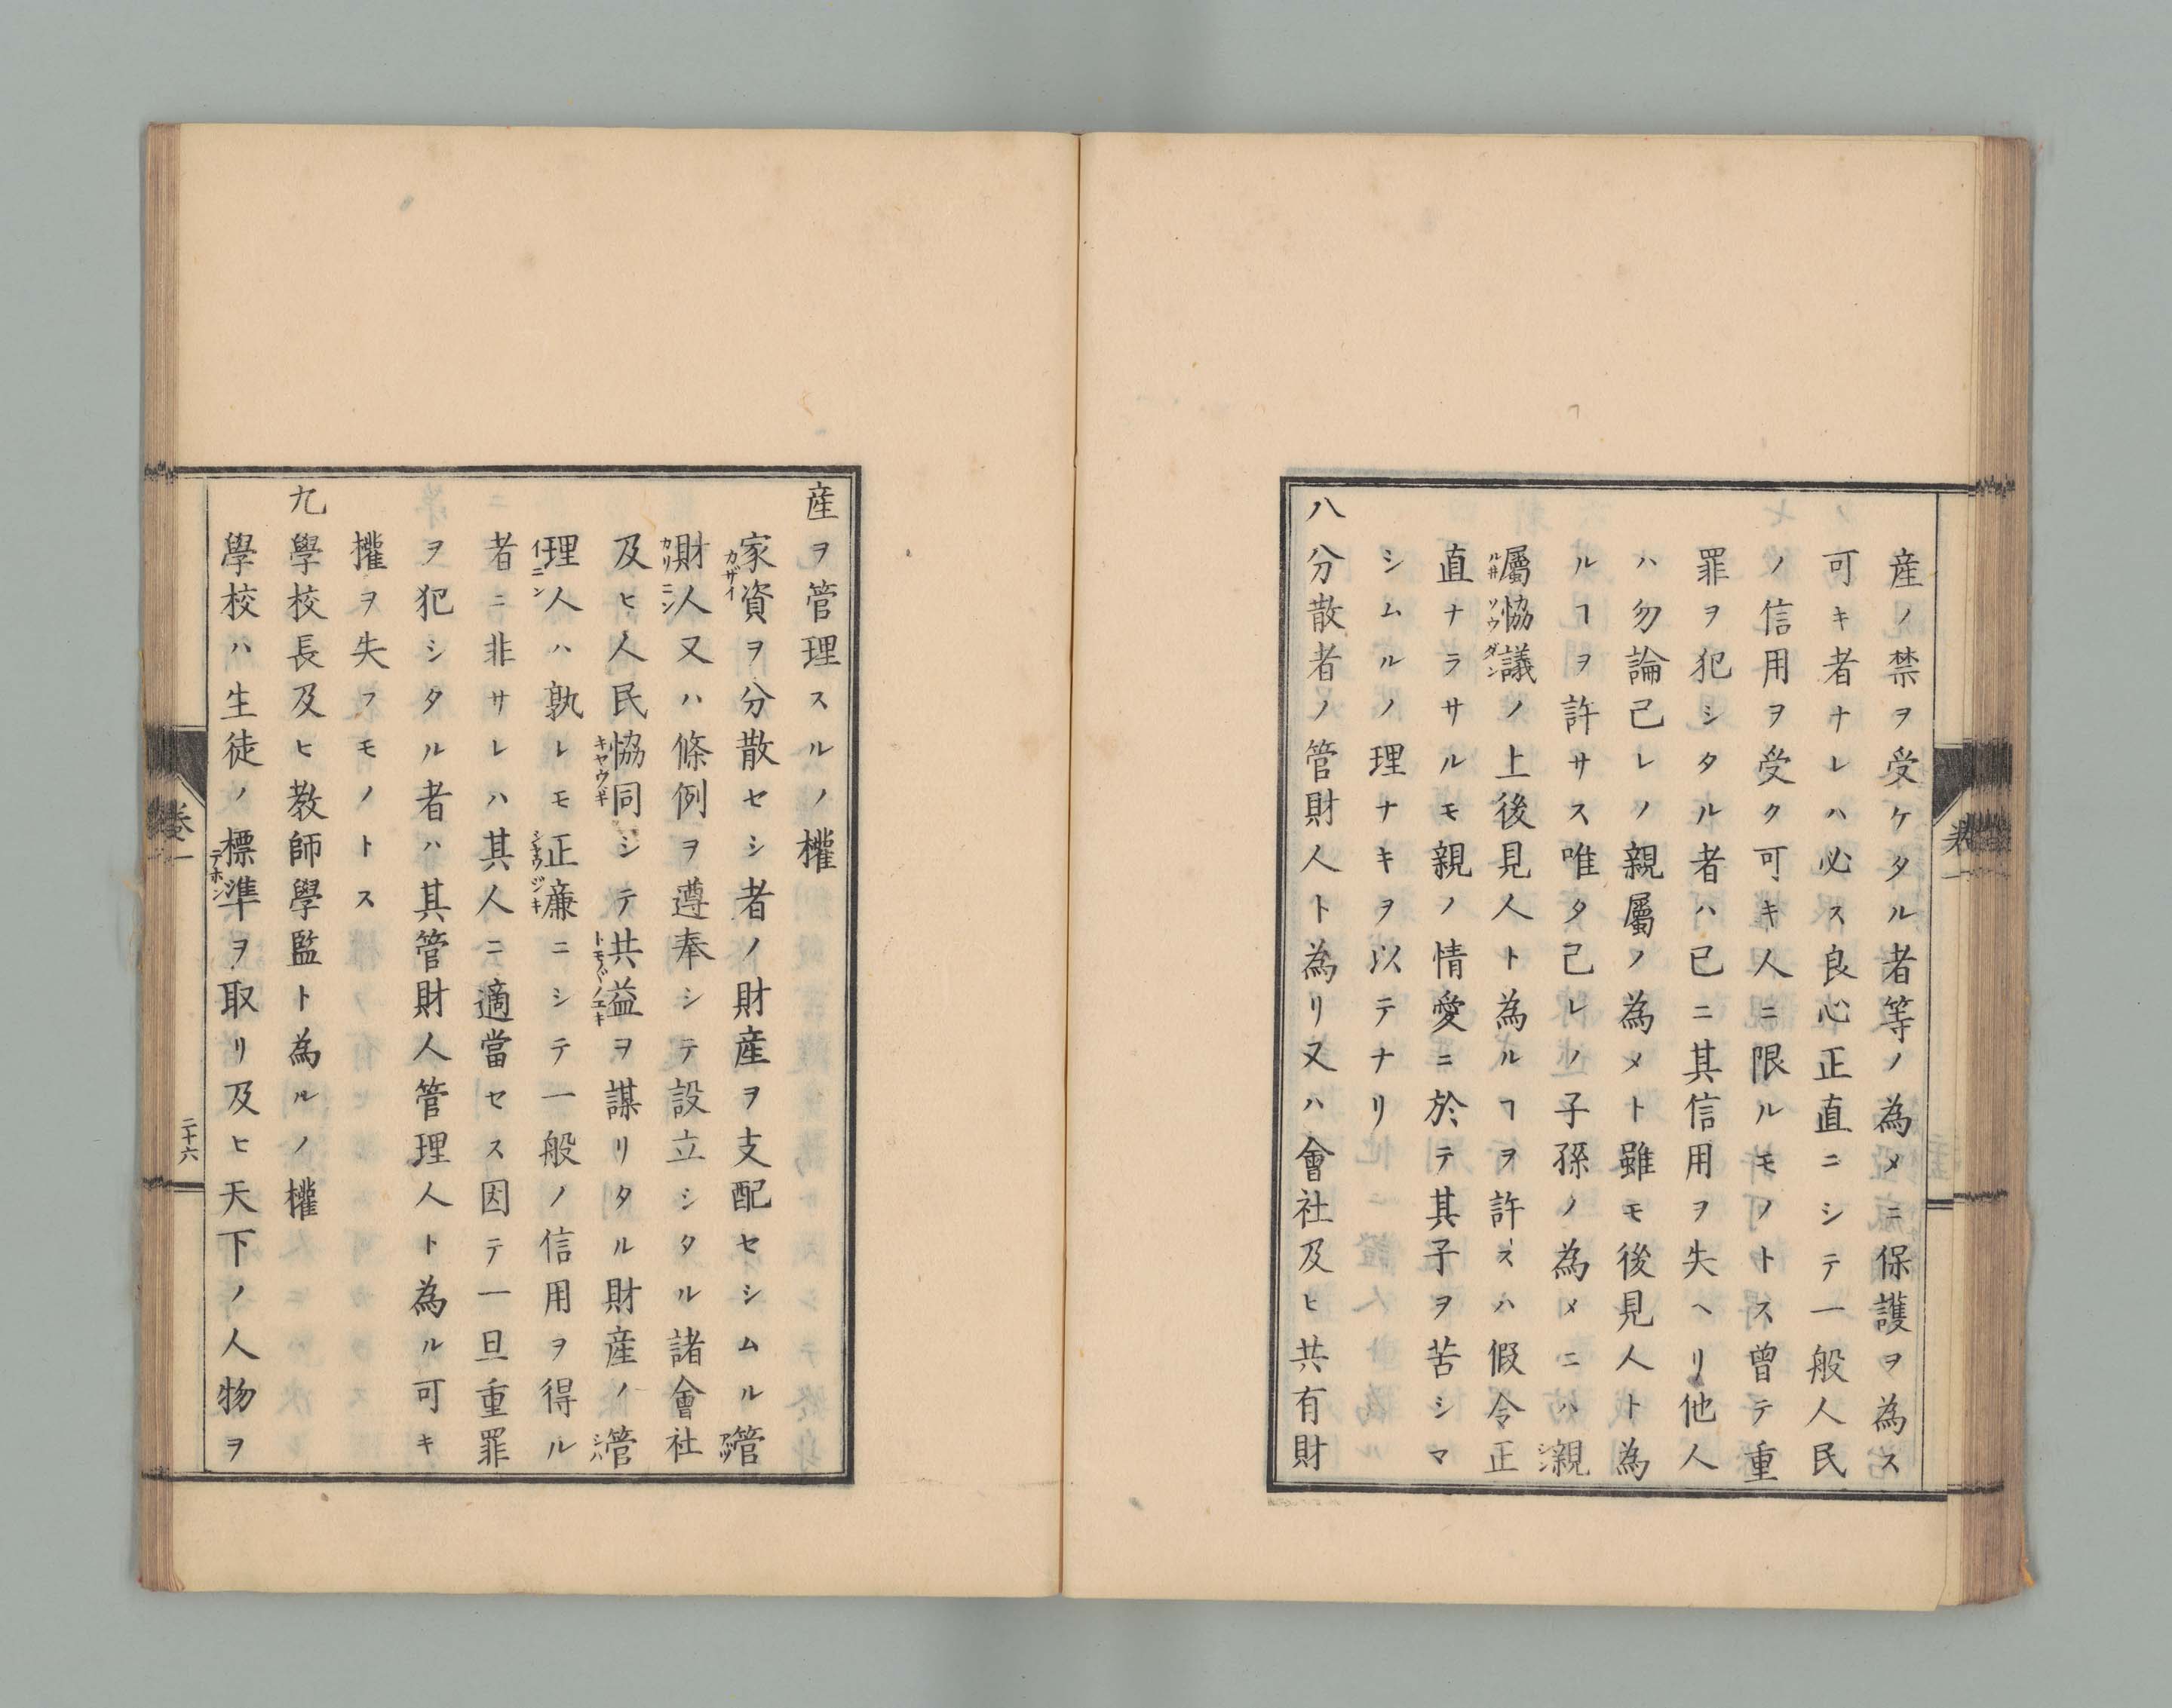 産ノ禁ヲ受ケタル者等ノ為メニ保護ヲ為ス
可キ者ナレハ必ス良心正直ニシテ一般人民
ノ信用ヲ受ク可キ人ニ限ルモノトス曽テ重
罪ヲ犯シタル者ハ已ニ其信用ヲ失ヘリ他人
ハ勿論己レノ親屬ノ為メト雖モ後見人ト為
ルヿヲ許サス唯タ己レノ子孫ノ為メニハ親
屬協議ノ上後見人ト為ルヿヲ許スハ假令正
直ナラサルモ親ノ情愛ニ於テ其子ヲ苦シマ
シムルノ理ナキヲ以テナリ
八分散者ノ管財人ト為リ又ハ會社及ヒ共有財
産ヲ管理スルノ權
家資ヲ分散セシ者ノ財産ヲ支配セシムル管
財人又ハ條例ヲ遵奉シテ設立シタル諸會社
及ヒ人民協同シテ共益ヲ謀リタル財産ノ管
理人ハ孰レモ正廉ニシテ一般ノ信用ヲ得ル
者ニ非サレハ其人ニ適當セス因テ一旦重罪
ヲ犯シタル者ハ其管財人管理人ト為ル可キ
權ヲ失フモノトス
九學校長及ヒ教師學監ト為ルノ權
學校ハ生徒ノ標準ヲ取リ及ヒ天下ノ人物ヲ
卷一
二十六